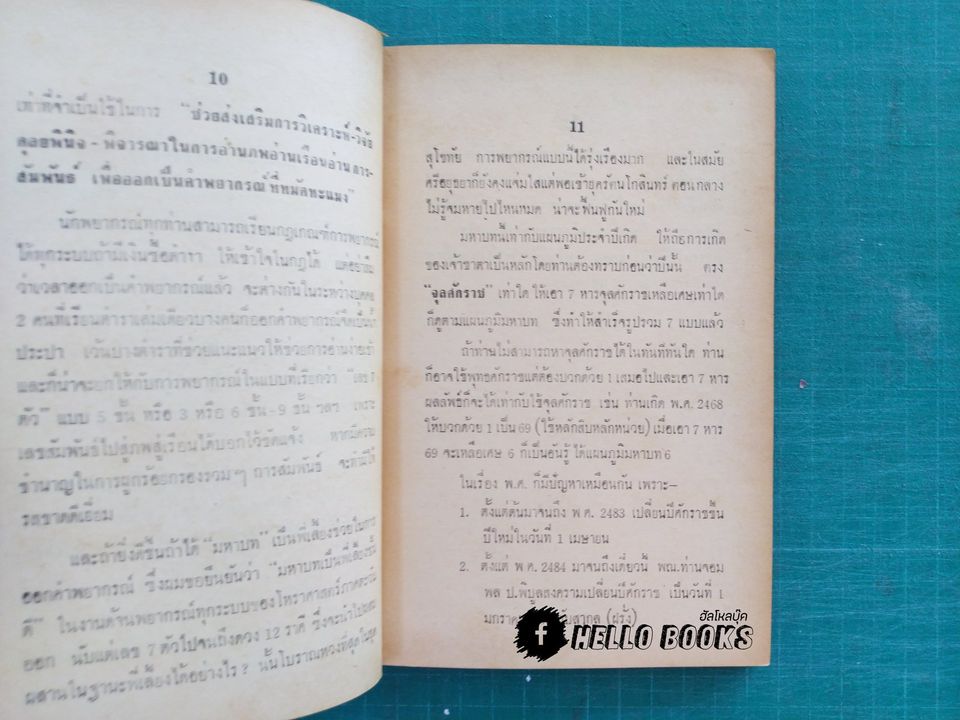 10
เท่าที่จำเป็นใช้ในการ "ช่วยส่งเสริมการวิเคราะห์-วิจัย
ดุลยพินิจ - พิจารณาในการอ่านภพอ่านเรือนอ่านการ-
สัมพันธ์ เพื่อออกเป็นคำพยากรณ์ที่หมัดทะแมง"
นักพยากรณ์ทุกท่านสามารถเรียนกฎเกณฑ์การพยากรณ์
ได้ทุกระบบถ้ามีเงินซื้อตำรา ให้เข้าใจในกฎได้ แต่อย่าลืม
ว่าเวลาออกเป็นคำพยากรณ์แล้ว จะต่างกันในระหว่างบุคคล
2 คนที่เรียนตำราเล่มเดียวบางคนก็ออกคำพยากรณ์จืดเป็นน้ำ
ประปา เว้นบางตำราที่ช่วยแนะแนวให้ช่วยการอ่านง่ายเข้า
และก็น่าจะยกให้กับการพยากรณ์ในแบบที่เรียกว่า "เลข 7
ตัว" แบบ 5 ชั้น หรือ 3 หรือ 6 ชั้น-9 ชั้น ฯลฯ เพราะ
เลขสัมพันธ์ไปสู่ภพสู่เรือนได้บอกไว้ชัดแจ้ง หากมีความ
ชำนาญในการผูกร้อยกรองรวมๆ การสัมพันธ์ จะทำนายได้
รสชาติดีเยี่ยม
และถ้ายิ่งดีขึ้นถ้าได้ "มหาบท" เป็นพี่เลี้ยงช่วยในการ
ออกคำพยากรณ์ ซึ่งผมขอยืนยันว่า "มหาบทเป็นพี่เลี้ยงชั้น
ดี" ในงานด้านพยากรณ์ทุกระบบของโหราศาสตร์ภาคตะวัน
ออก นับแต่เลข 7 ตัวไปจนถึงดวง 12 ราศี ซึ่งจะนำไปผสม
ผสานในฐานะพี่เลี้ยงได้อย่างไร ? นั้นโบราณหวงที่สุดในยุค
11
สุโขทัย การพยากรณ์แบบนี้ได้รุ่งเรืองมาก และในสมัย
ศรีอยุธยาก็ยังคงแจ่มใสแต่พอเข้ายุครัตนโกสินทร์ ตอนกลาง
ไม่รู้จมหายไปไหนหมด น่าจะฟื้นฟูกันใหม่
มหาบทนี้เท่ากับแผนภูมิประจำปีเกิด ให้ถือการเกิด
ของเจ้าชาตาเป็นหลักโดยท่านต้องทราบก่อนว่าปีนั้น ตรง
"จุลศักราช" เท่าใด ให้เอา 7 หารจุลศักราชเหลือเศษเท่าใด
ก็ดูตามแผนภูมิมหาบท ซึ่งทำให้สำเร็จรูปรวม 7 แบบแล้ว
ถ้าท่านไม่สามารถหาจุลศักราชได้ในทันทีทันใด ท่าน
ก็อาจใช้พุทธศักราชแต่ต้องบวกด้วย 1 เสมอไปและเอา 7 หาร
ผลลัพธ์ก็จะได้เท่ากับใช้จุลศักราช เช่น ท่านเกิด พ.ศ. 2468
ให้บวกด้วย 1 เป็น 69 (ใช้หลักสิบหลักหน่วย) เมื่อเอา 7 หาร
69 จะเหลือเศษ 6 ก็เป็นอันรู้ ได้แผนภูมิมหาบท 6
ในเรื่อง พ.ศ. ก็มีปัญหาเหมือนกัน เพราะ-
1. ตั้งแต่ต้นมาจนถึง พ.ศ. 2483 เปลี่ยนปีศักราชขึ้น
ปีใหม่ในวันที่ 1 เมษายน
2. ตั้งแต่ พ.ศ. 2484 มาจนถึงเดี๋ยวนี้ พณ.ท่านจอม
พล ป.พิบูลสงครามเปลี่ยนปีศักราช เป็นวันที่ 1
มกรา สากล (ฝรั่ง)
ฮัลโหลบุ๊ค
f HELLO BOOKS